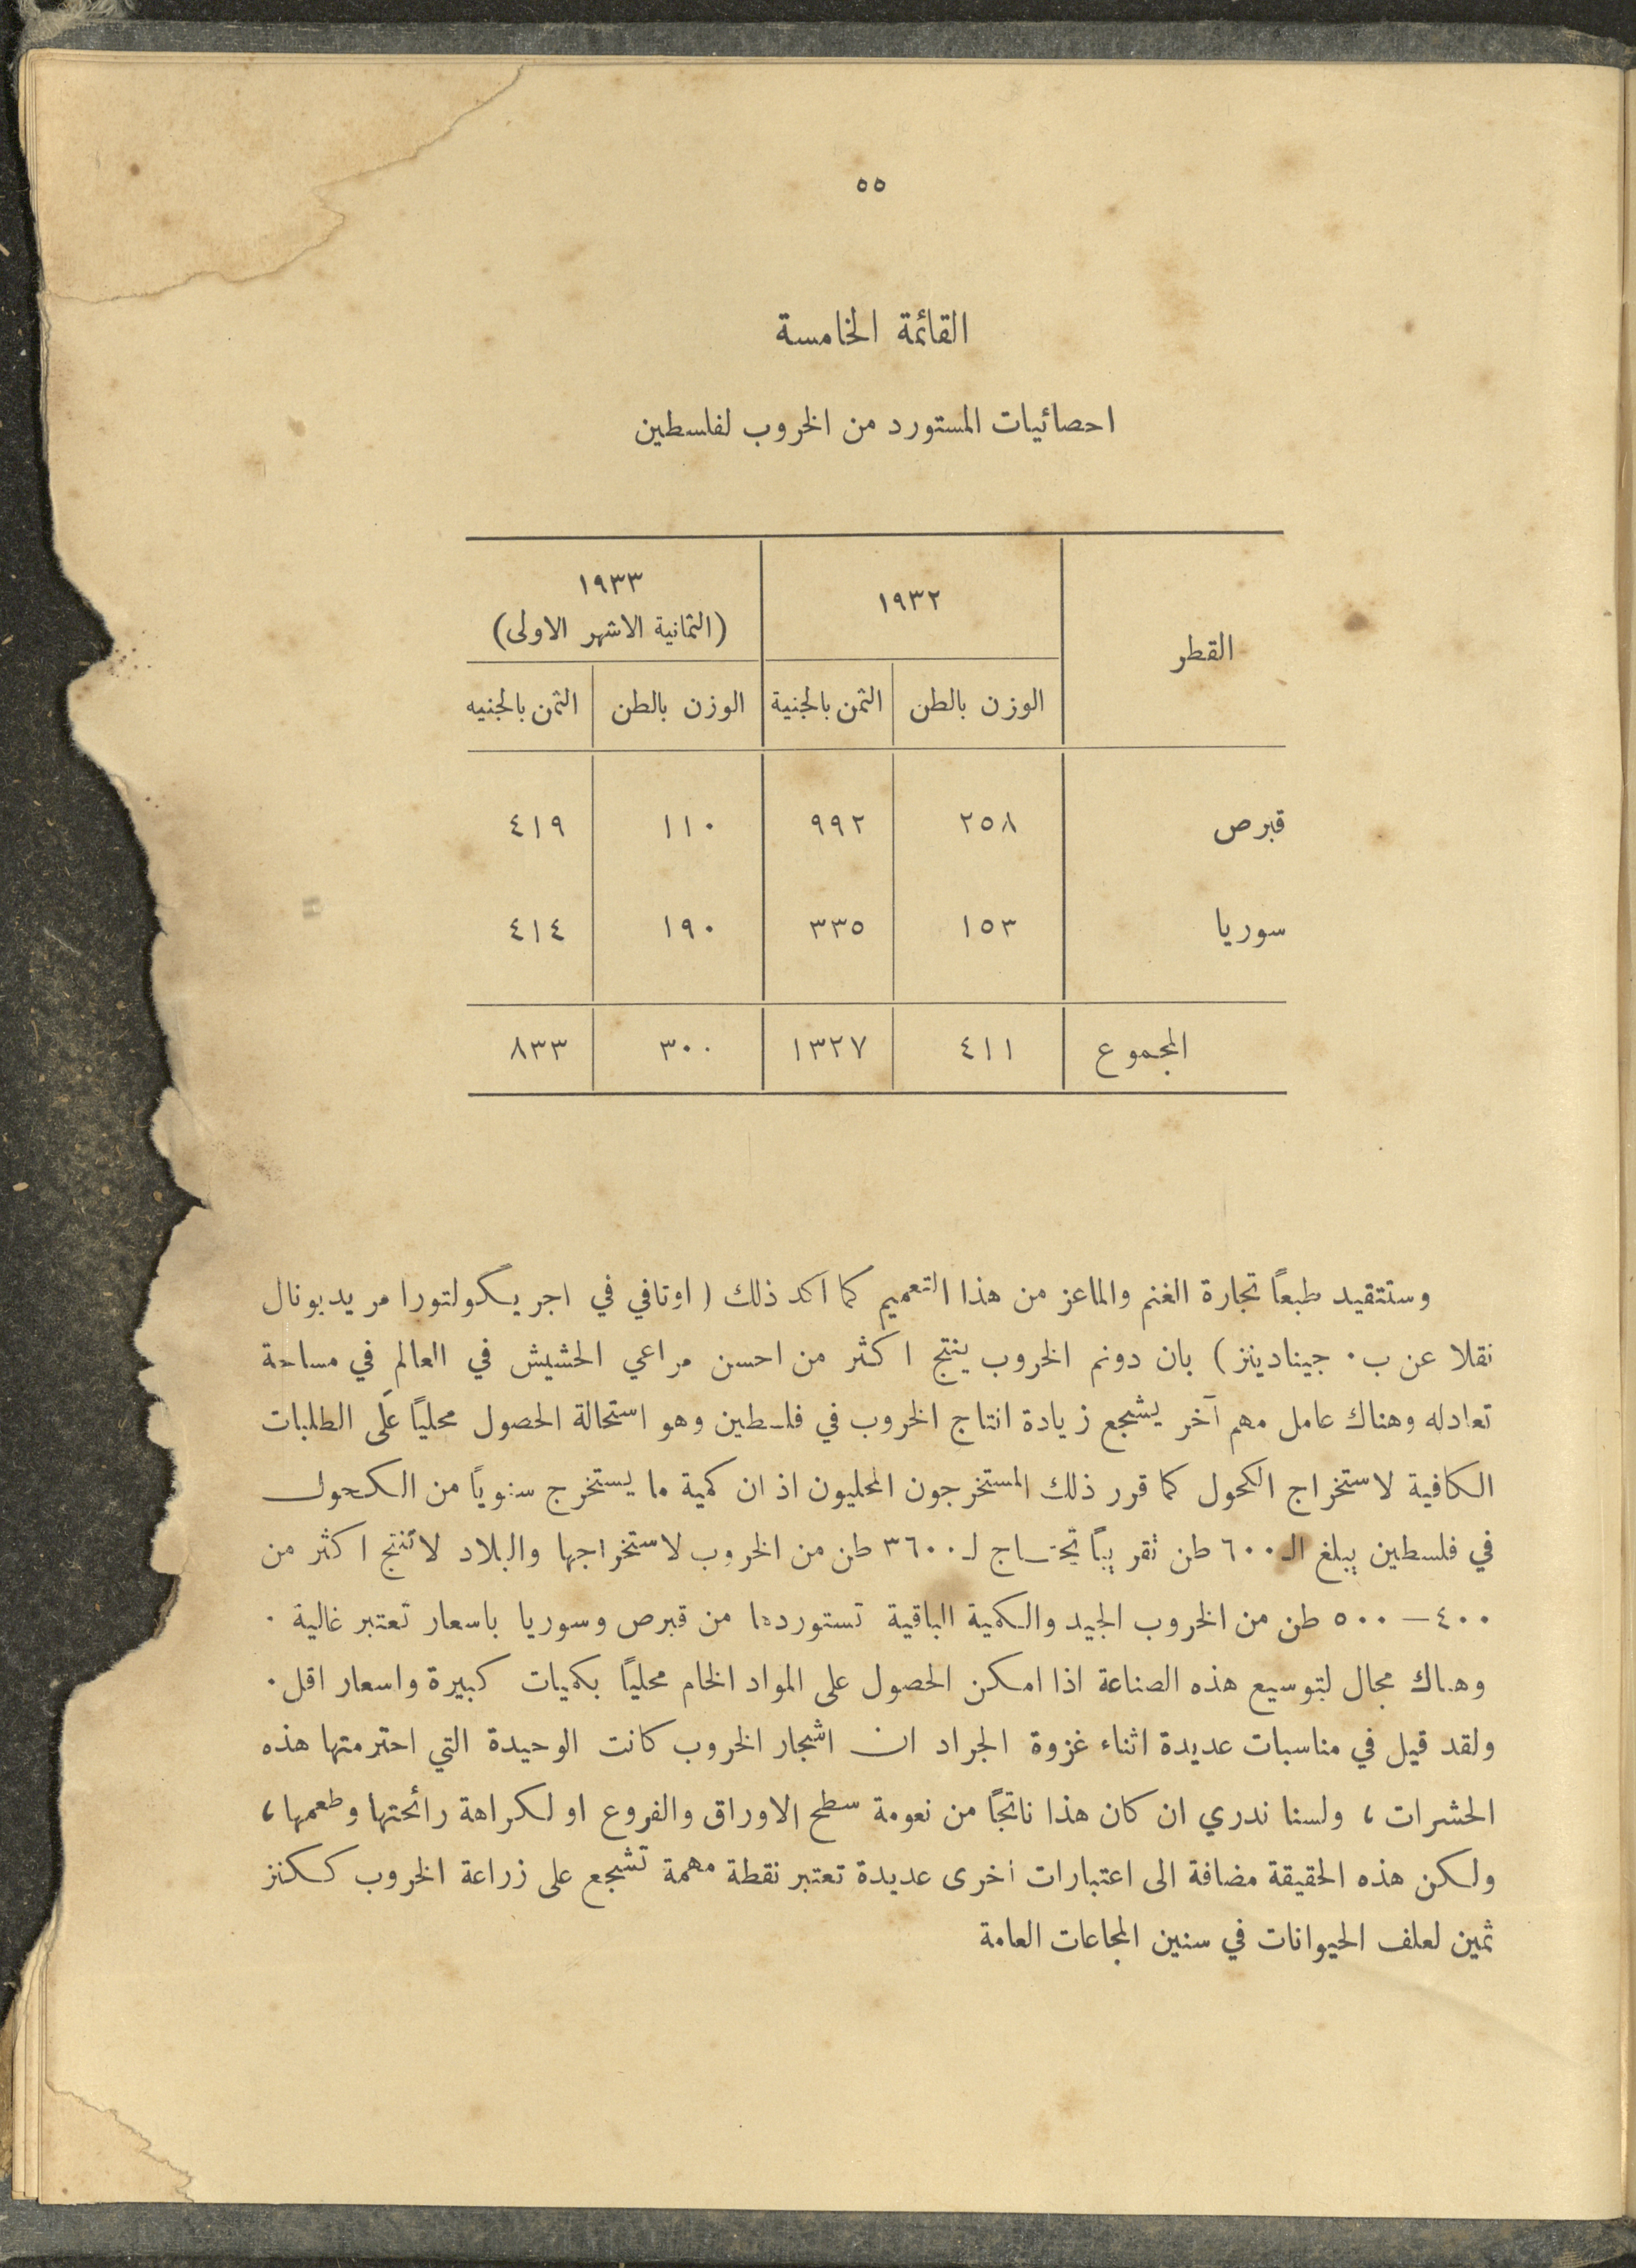 ٥٥
القائمة الخامسة
احصائيات المستورد من الخروب لفلسطين
القطر ١٩٣٢ ١٩٣٣
(الثمانية الاشهر الاولى)
الوزن بالطن الثمن بالجنية الوزن بالطن الثمن بالجنيه
قبرص ٢٥٨ ٩٩٢ ١١٠ ٤١٩
سوريا ١٥٣ ٣٣٥ ١٩٠ ٤١٤
المجموع ٤١١ ١٣٢٧ ٣٠٠ ٨٣٣
وستتقيد طبعاً تجارة الغنم والماعز من هذا التعميم كما اكد ذلك ( اوتافي في اجريكولتورا مريديونال
نقلا عن ب٠ جينادينز ) بان دونم الخروب ينتج اكثر من احسن مراعي الحشيش في العالم في مساحة
تعادله وهناك عامل مهم آخر يشجع زيادة انتاج الخروب في فلسطين وهو استحالة الحصول محلياً على الطلبات
الكافية لاستخراج الكحول كما قرر ذلك المستخرجون المحليون اذ ان كمية ما يستخرج سنوياً من الكحول
في فلسطين يبلغ الـ ٦٠٠ طن تقريباً تحتاج لـ ٣٦٠٠ طن من الخروب لاستخراجها والبلاد لا تنتج اكثر من
٤٠٠ – ٥٠٠ طن من الخروب الجيد والكمية الباقية تستوردها من قبرص وسوريا باسعار تعتبر غالية ٠
وهناك مجال لتوسيع هذه الصناعة اذا امكن الحصول على المواد الخام محلياً بكميات كبيرة واسعار اقل ٠
ولقد قيل في مناسبات عديدة اثناء غزوة الجراد ان اشجار الخروب كانت الوحيدة التي احترمتها هذه
الحشرات ، ولسنا ندري ان كان هذا ناتجاً من نعومة سطح الاوراق والفروع او لكراهة رائحتها وطعمها ،
ولكن هذه الحقيقة مضافة الى اعتبارات اخرى عديدة تعتبر نقطة مهمة تشجع على زراعة الخروب ككنز
ثمين لعلف الحيوانات في سنين المجاعات العامة